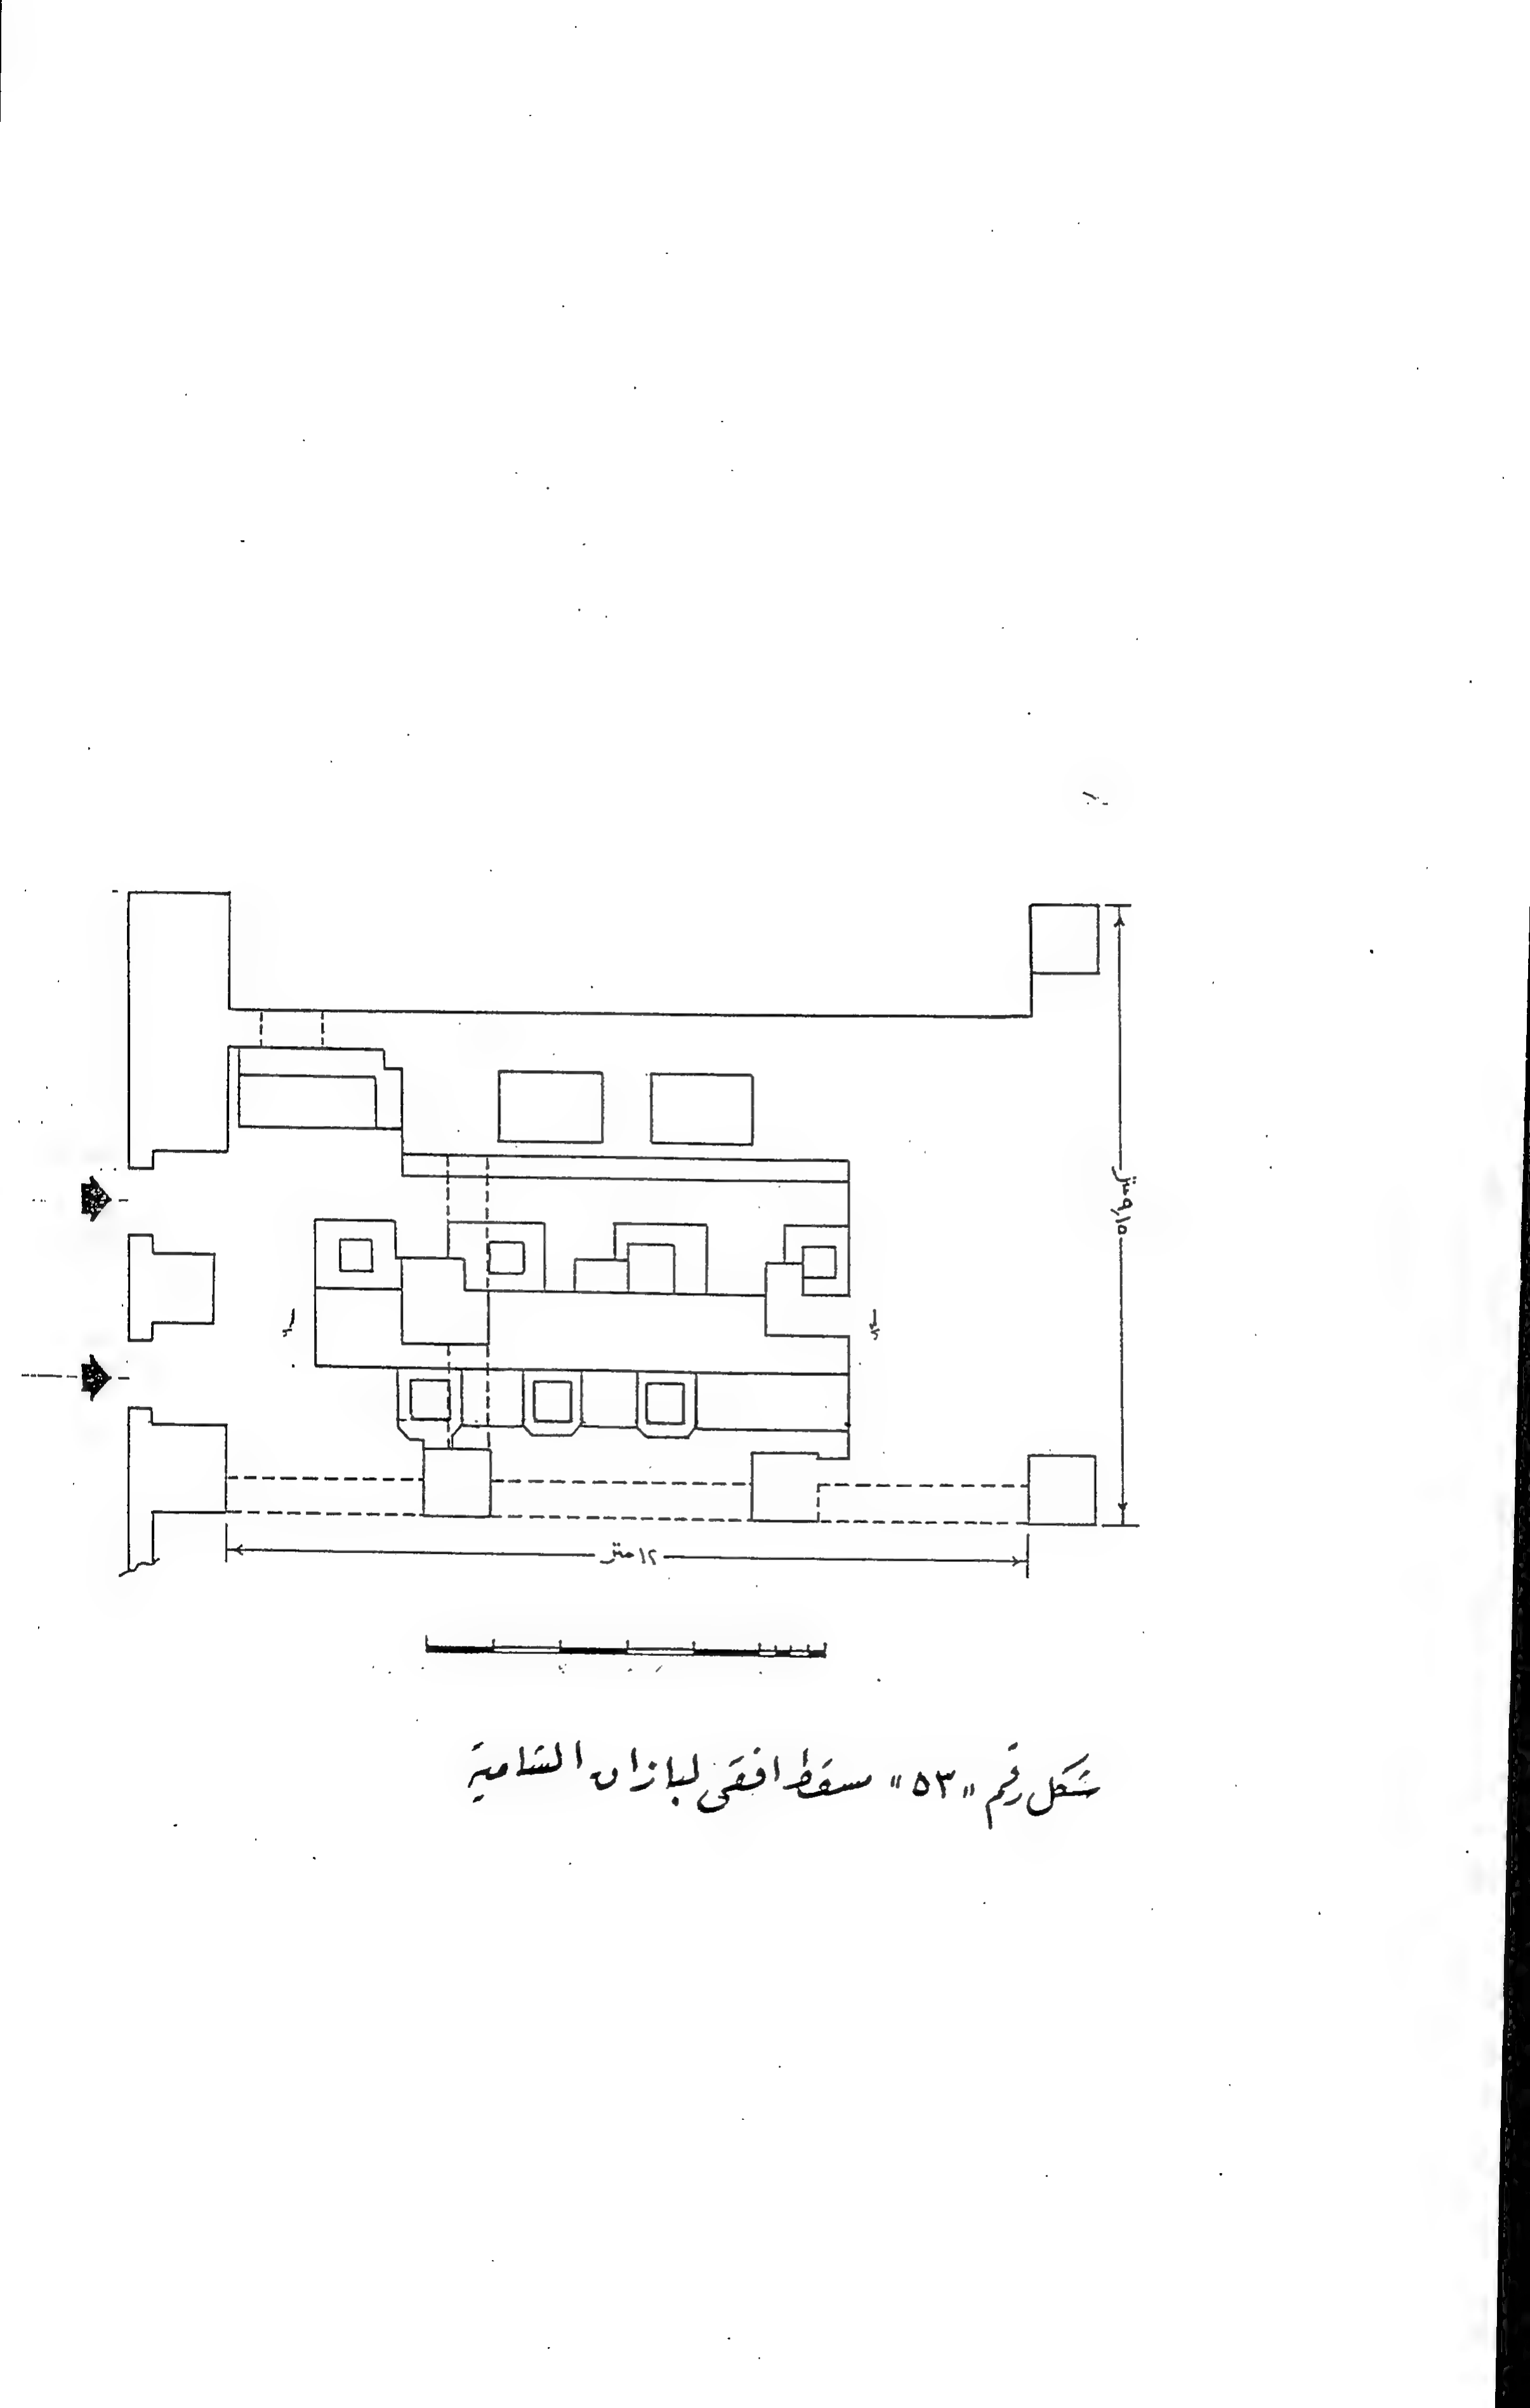 ٩,١٥ متر
١٢ متر
شكل رقم "٥٣" مسقط افقى لبازان الشامية